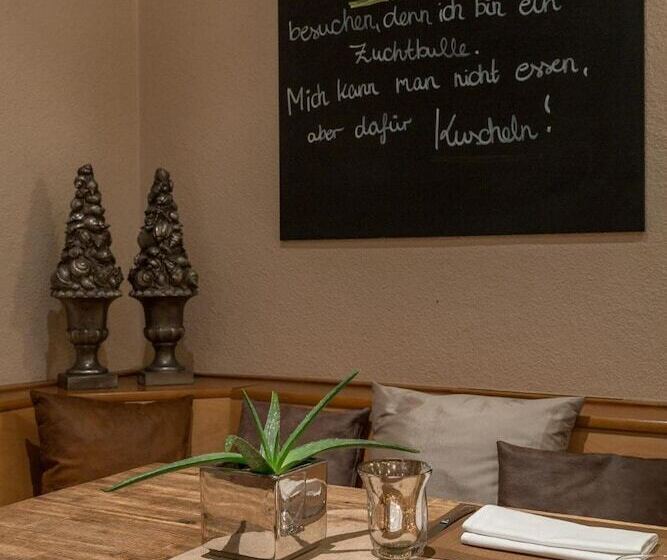 besuchen, denn ich bin ein
Zuchtbulle.
Mich kann man nicht essen,
aber dafür Kuscheln!